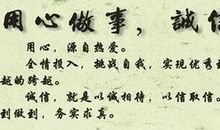 用心做事，誠信
用心，源自热爱。
全情投入，挑战自我，实现优秀
越的跨越。
诚信，就是以诚相待，以信取信。
到做到，务实求真。